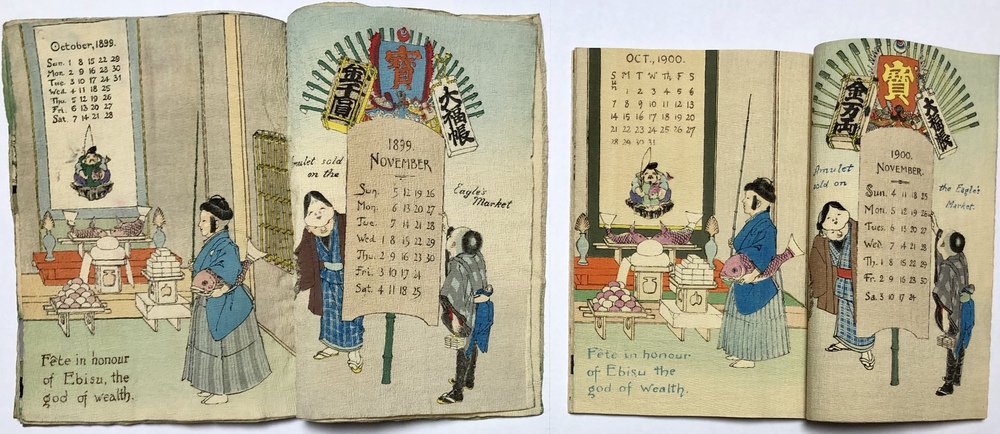 October, 1899.
Sun. 1 8 15 22 29
Mon. 2 9 16 23 30
Tue. 3 10 17 24 31
Wed. 4 11 18 25
Thu. 5 12 19 26
Fri. 6 13 20 27
Sat. 7 14 21 28
Fête in honour
of Ebisu, the
god of wealth.
寶
金千圓
大福帳
1899.
NOVEMBER
Sun. 5 12 19 26
Mon. 6 13 20 27
Tue. 7 14 21 28
Wed 1 8 15 22 29
Thu. 2 9 16 23 30
Fri. 3 10 17 24
Sat. 4 11 18 25
Amulet sold
on the
Eagle's
Market
OCT., 1900.
SUN M T W Th F S
1 2 3 4 5 6
7 8 9 10 11 12 13
14 15 16 17 18 19 20
21 22 23 24 25 26 27
28 29 30 31
Fête in honour
of Ebisu the
god of wealth.
寶
金万両
大福帳
1900.
NOVEMBER.
Sun. 4 11 18 25
Mon. 5 12 19 26
Tues. 6 13 20 27
Wed. 7 14 21 28
Th. 1 8 15 22 29
Fri. 2 9 16 23 30
Sa. 3 10 17 24
Amulet
sold on
the Eagle's
Market.